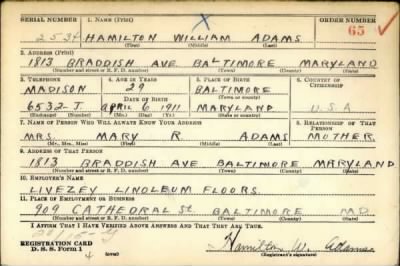 SERIAL NUMBER 1. NAME (Print) ORDER NUMBER
253 HAMILTON WILLIAM ADAMS 65
(First) (Middle) (Last)
2. ADDRESS (Print)
1813 BRADDISH AVE BALTIMORE MARYLAND
(Number and street or R. F. D. number) (Town) (County) (State)
3. TELEPHONE 4. AGE IN YEARS 5. PLACE OF BIRTH 6. COUNTRY OF CITIZENSHIP
MADISON 29 BALTIMORE
DATE OF BIRTH (Town or county)
6532 J. APRIL 6 1911 MARYLAND U.S.A
(Exchange) (Number) (Mo.) (Day) (Yr.) (State or country)
7. NAME OF PERSON WHO WILL ALWAYS KNOW YOUR ADDRESS 8. RELATIONSHIP OF THAT PERSON
MRS. MARY R ADAMS MOTHER
(Mr., Mrs., Miss) (First) (Middle) (Last)
9. ADDRESS OF THAT PERSON
1813 BRADDISH AVE BALTIMORE MARYLAND
(Number and street or R. F. D. number) (Town) (County) (State)
10. EMPLOYER'S NAME
LIVEZEY LINOLEUM FLOORS
11. PLACE OF EMPLOYMENT OR BUSINESS
909 CATHEDRAL St. BALTIMORE MD.
(Number and street or R. F. D. number) (Town) (County) (State)
I AFFIRM THAT I HAVE VERIFIED ABOVE ANSWERS AND THAT THEY ARE TRUE.
REGISTRATION CARD
D. S. S. Form 1 Hamilton W. Adams
(Registrant's signature)